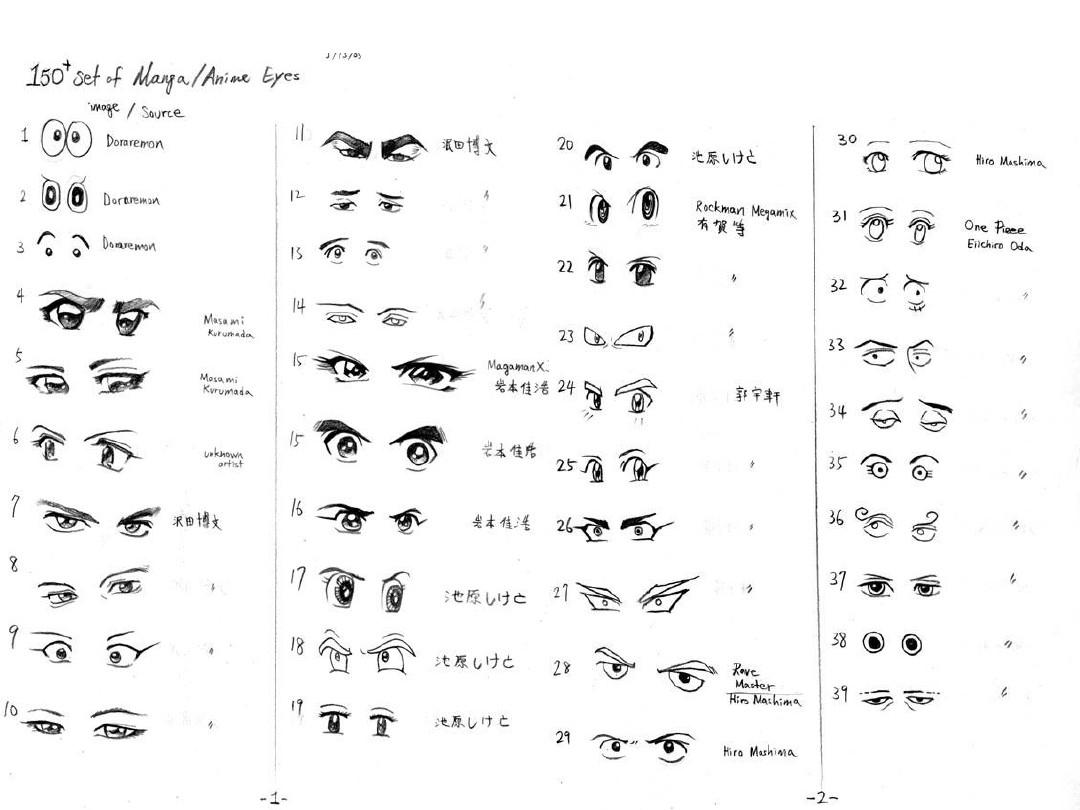 150+ Set of Manga/Anime Eyes
image / Source
1 Doraremon
2 Doraremon
3 Doraremon
4 Masami
Kurumada
5 Masami
Kurumada
6 unknown
artist
7 沢田博文
8 〃
9 〃
10 〃
-1-
11 沢田博文
12 〃
13 〃
14 〃
15 MagamanX
岩本佳浩
15 岩本佳浩
16 岩本佳浩
17 池原しけと
18 池原しけと
19 池原しけと
20 池原しけと
21 Rockman Megamix
有賀等
22 〃
23 〃
24
25 〃
26 〃
27 〃
28 Rave
Master
Hiro Mashima
29 Hiro Mashima
30 Hiro Mashima
31 One Pieee
Eiichiro Oda
32 〃
33 〃
34 〃
35 〃
36 〃
37 〃
38 〃
39 〃
-2-